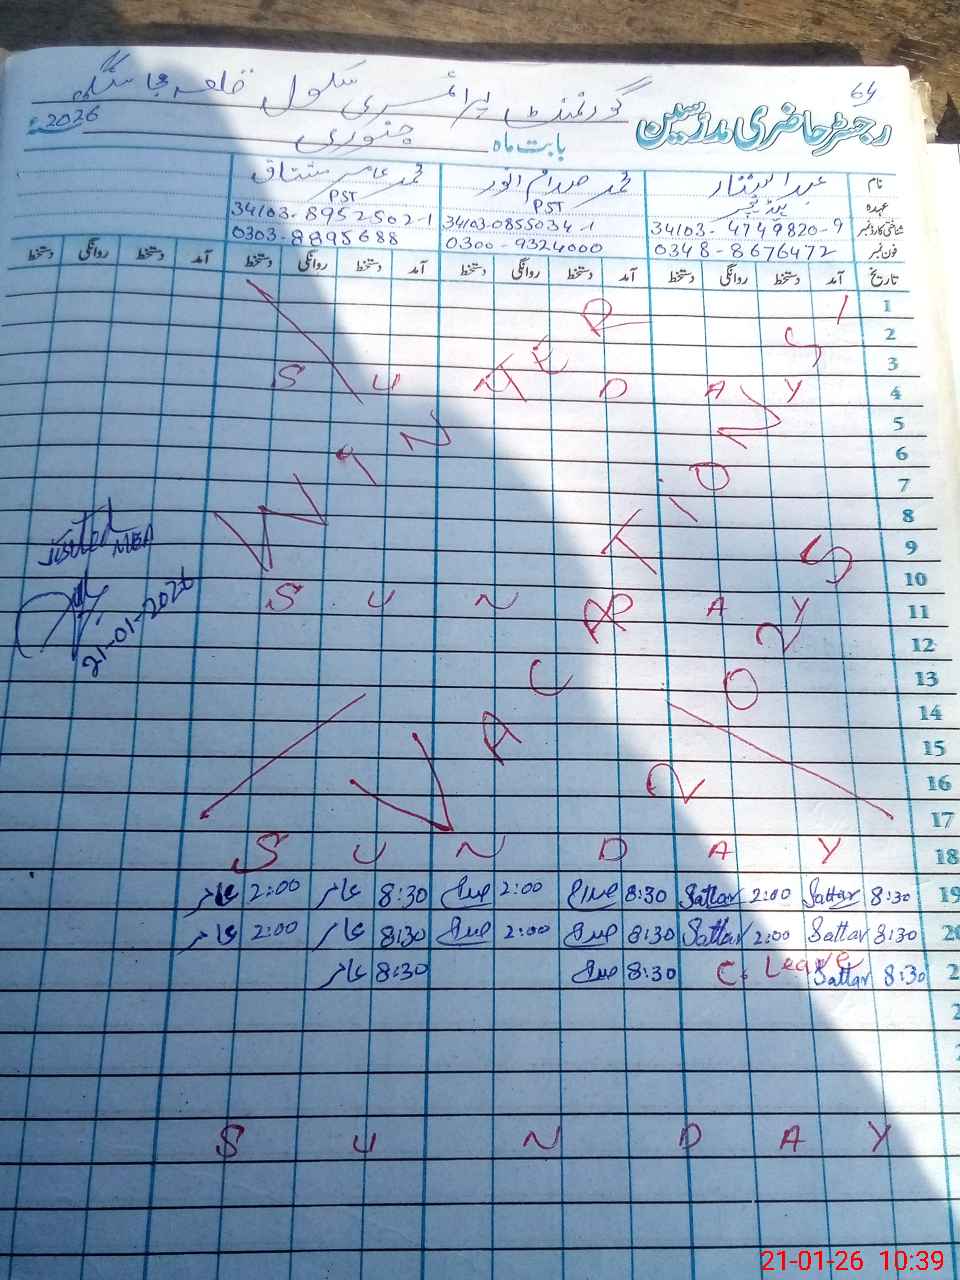 64
گورنمنٹ پرائمری سکول قلعہ
رجسٹر حاضری مدرسین
بابت ماہ جنوری 2026ء
نام عبدالستار محمد صدام انور محمد عامر مشتاق
عہدہ PST PST
شناختی کارڈ نمبر 34103-4749820-9 34103-0855034-1 34103-8952502-1
فون نمبر 0348-8676472 0300-9324000 0303-8895688
تاریخ آمد دستخط روانگی دستخط آمد دستخط روانگی دستخط آمد دستخط روانگی دستخط آمد دستخط روانگی دستخط
1
2
3
4 SUNDAY
5
6
7
8
9
10
11 SUNDAY
12
13
14
15
16
17
WINTER
VACATIONS
2025
18 SUNDAY
19 8:30 Sattar 2:00 Sattar 8:30 2:00 8:30 عامر 2:00 عامر
20 8:30 Sattar 2:00 Sattar 8:30 2:00 8:30 عامر 2:00 عامر
2 8:30 Sattar C. Leave 8:30 8:30 عامر
2
SUNDAY
Visited
MEA
21-01-2026
21-01-26 10:39